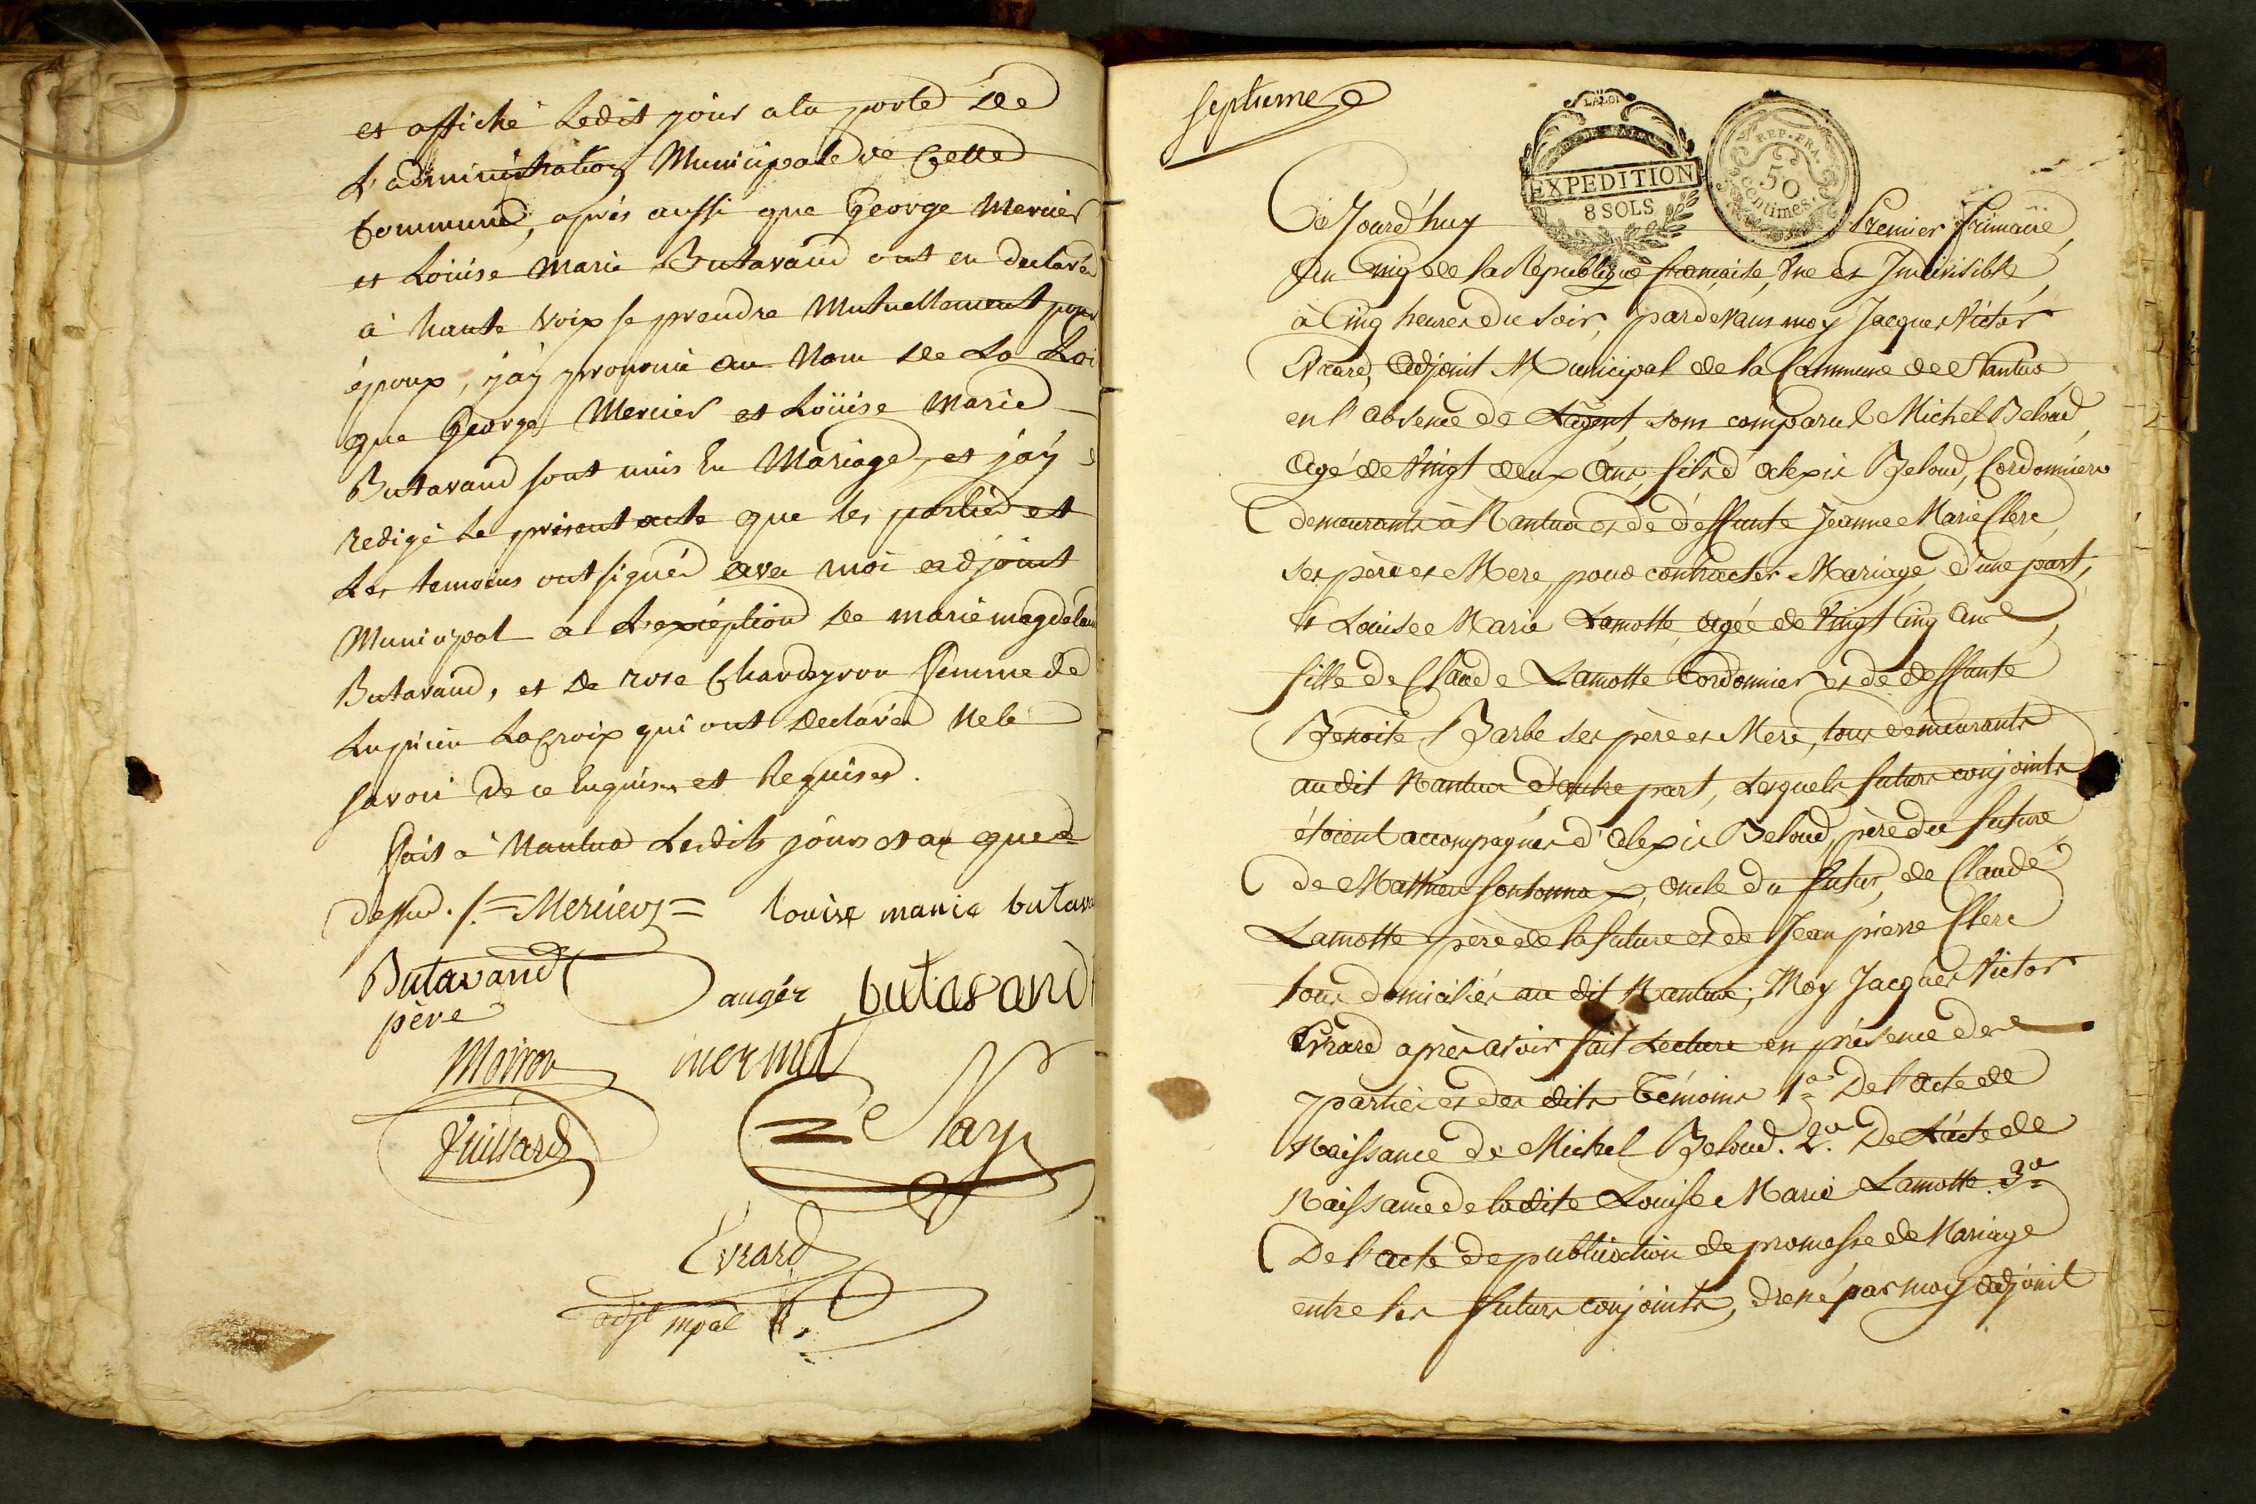 et affiché Ledit jour a la porte de
L'administration Municipale de Cette
Commune, après aussi que George Mercier
et Loüise Marie Butavand ont eu declaré
à haute voix se prendre Mutuellement pour
époux, j'ay prononcé au Nom de La Loi
que George Mercier et Loüise Marie
Butavand sont unis En Mariage, et j'ay
redigé le present acte que les parties et
Les temoins ont signés avec moi adjoint
Municipal a L'exception de marie magdelaine
Butavand, et de rose Chardeyron femme de
Lupicin LaCroix qui ont declaré Ne le
savoir de ce Enquises et Requises.
Fait à Nantua Lesdits jours et an que
dessus ./. = Mercier = louise marie butava
Butavand père auger butavand
Moiron mermet
Vuillard Nay
Evrard
adjt mpal
septieme
EXPEDITION
8 SOLS
LA LOI
REP. FRA.
50
centimes.
Cejourd'huy Premier frimaire
an Cinq de la Republique française, Une et Indivisible,
à Cinq heures du soir, pardevant moy Jacques Victor
Evrard, adjoint Municipal de la Commune de Nantua
en l'absence de L'agent, sont comparus Michel Beloud,
agé de Vingt deux Ans, fils d'alexis Beloud, Cordonniers
demeurants à Nantua et de deffunte Jeanne Marie Clerc,
ses père et Mere, pour contracter Mariage d'une part,
Et Louise Marie Lamotte, agée de Vingt Cinq Ans,
fille de Claude Lamotte Cordonnier et de deffunte
Benoite Barbe ses père et Mere, tous demeurants
audit Nantua d'autre part, Lesquels futurs conjoints
étoient accompagnés d'alexis Beloud, père du future
de Mathieu Sontonnax, oncle du futur, de Claude
Lamotte père de la future et de Jean pierre Clerc
tous domiciliés au dit Nantua; Moy Jacques Victor
Evrard après avoir fait Lecture en présence des
parties et des dits Témoins 1° De l'acte de
Naissance de Michel Beloud. 2° De L'acte de
Naissance de ladite Louise Marie Lamotte. 3°
De l'acte de publication de promesse de Mariage
entre les futurs conjoints, dressé par moy adjoint